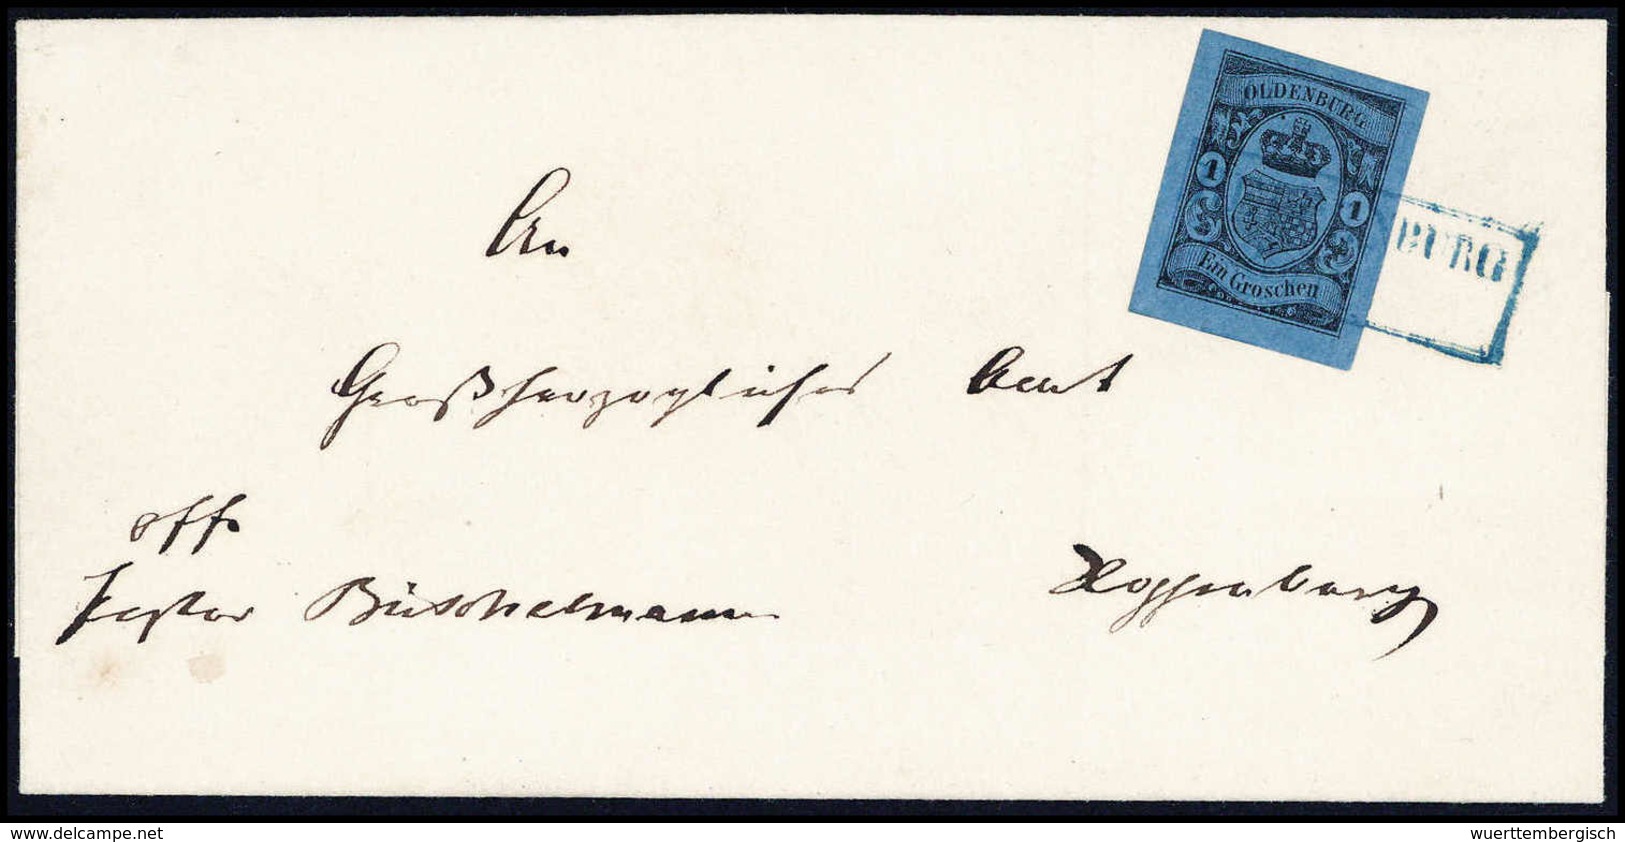 OLDENBURG
1 1
Ein Groschen
BURG
An
Großherzogliches Amt
offs
Pastor Büschelmann
Kloppenburg
www.delcampe.net
wuerttembergisch